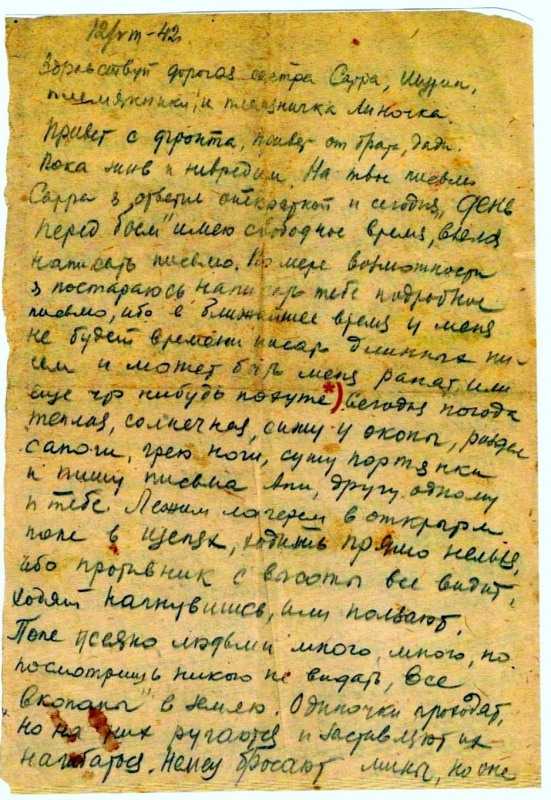 12/VIII-42
Здравствуй дорогая сестра Сарра, Шурик,
племянники, и племяничка Линочка.
Привет с фронта, привет от брата, дяди.
Пока жив и нивредим. На твое письмо
Сарра я ответил откраткой и сегодня „День
перед боем" имею свободное время, взялся
написать письмо. По мере возможности
я постараюсь написать тебе подробное
письмо, ибо в ближайшее время у меня
не будет времени писать длинных пи-
сем и может быть меня ранят, или
еще что нибудь похуже*) Сегодня погода
теплая, солнечная, сижу у окопы, раздел
сапоги, грею ноги, сушу портянки
и пишу письма Ани, другу одному
и тебе. Лежим лагерем в открытом
поле в щелях, ходить прямо нельзя,
ибо противник с высоты все видит,
ходят нагнувшись, или ползают.
Поле усеяно людьми много, много, но
посмотришь никого не видать, все
„вкопаны" в землю. Одиночки проходят,
но на них ругаются и заставляют их
нагибаться. Немец бросает мины, но они